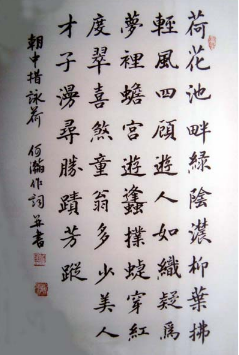 荷花池畔綠陰濃柳葉拂
輕風四顧遊人如織疑為
夢裡蟾宮遊蓬撲蜨穿紅
度翠喜煞童翁多少美人
才子漫尋勝蹟芳蹤
朝中措詠荷 何瀚作詞并書